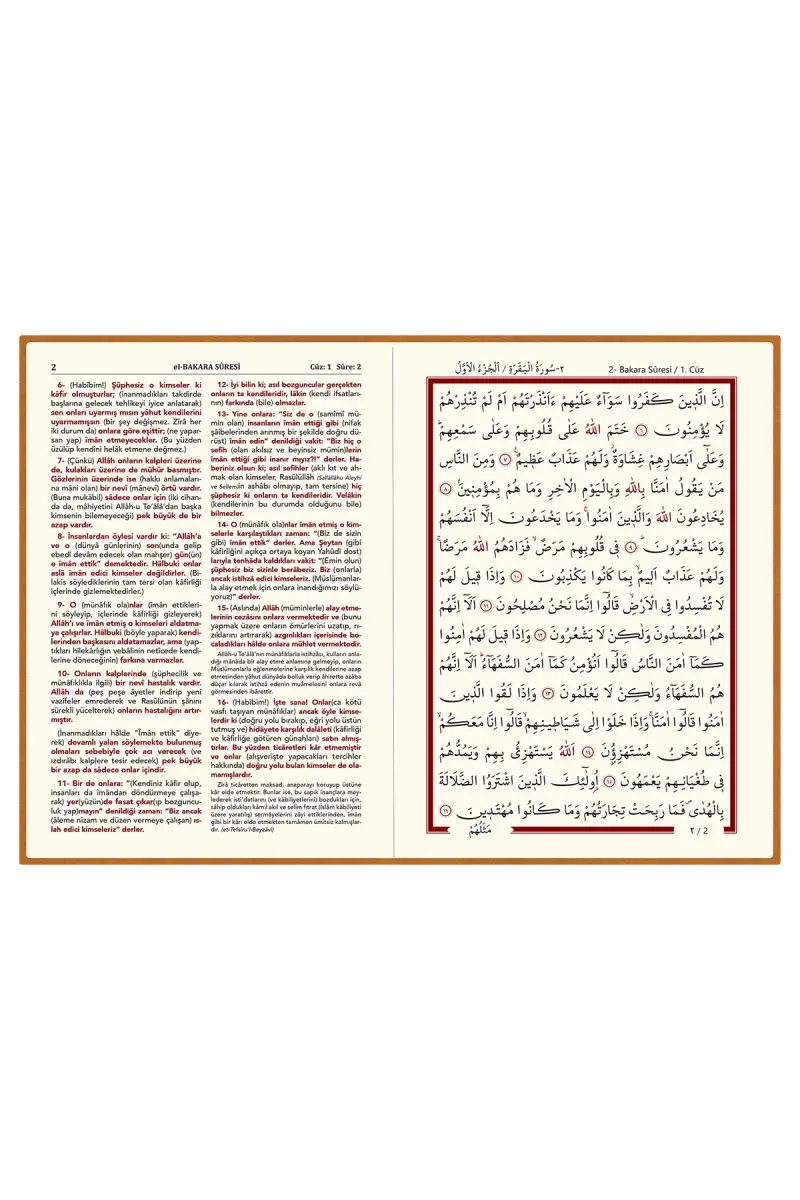 2 el-BAKARA SÛRESİ Cüz: 1 Sûre: 2
6- (Habîbim!) Şüphesiz o kimseler ki
kâfir olmuşturlar; (inanmadıkları takdirde
başlarına gelecek tehlikeyi iyice anlatarak)
sen onları uyarmış mısın yâhut kendilerini
uyarmamışsın (bir şey değişmez. Zîrâ her
iki durum da) onlara göre eşittir; (ne yapar-
san yap) îmân etmeyecekler. (Bu yüzden
üzülüp kendini helâk etmene değmez.)
7- (Çünkü) Allâh onların kalpleri üzerine
de, kulakları üzerine de mühür basmıştır.
Gözlerinin üzerinde ise (hakkı anlamaları-
na mâni olan) bir nevî (mânevî) örtü vardır.
(Buna mukābil) sâdece onlar için (iki cihan-
da da, mâhiyetini Allâh-u Te'âlâ'dan başka
kimsenin bilemeyeceği) pek büyük de bir
azap vardır.
8- İnsanlardan öylesi vardır ki: "Allâh'a
ve o (dünyâ günlerinin) son(unda gelip
ebedî devâm edecek olan mahşer) gün(ün)
e îmân ettik" demektedir. Hâlbuki onlar
aslâ îmân edici kimseler değildirler. (Bi-
lakis söylediklerinin tam tersi olan kâfirliği
içlerinde gizlemektedirler.)
9- O (münâfık ola)nlar (îmân ettikleri-
ni söyleyip, içlerinde kâfirliği gizleyerek)
Allâh'ı ve îmân etmiş o kimseleri aldatma-
ya çalışırlar. Hâlbuki (böyle yaparak) kendi-
lerinden başkasını aldatamazlar, ama (yap-
tıkları hilekârlığın vebâlinin netîcede kendi-
lerine döneceğinin) farkına varmazlar.
10- Onların kalplerinde (şüphecilik ve
münâfıklıkla ilgili) bir nevî hastalık vardır.
Allâh da (peş peşe âyetler indirip yeni
vazîfeler emrederek ve Rasûlünün şânını
sürekli yücelterek) onların hastalığını artır-
mıştır.
(İnanmadıkları hâlde "Îmân ettik" diye-
rek) devamlı yalan söylemekte bulunmuş
olmaları sebebiyle çok acı verecek (ve
ızdırâbı kalplere tesir edecek) pek büyük
bir azap da sâdece onlar içindir.
11- Bir de onlara: "(Kendiniz kâfir olup,
insanları da îmândan döndürmeye çalışa-
rak) yer(yüzün)de fesat çıkar(ıp bozguncu-
luk yap)mayın" denildiği zaman: "Biz ancak
(âleme nizam ve düzen vermeye çalışan) ıs-
lah edici kimseleriz" derler.
12- İyi bilin ki; asıl bozguncular gerçekten
onların ta kendileridir, lâkin (kendi ifsatları-
nın) farkında (bile) olmazlar.
13- Yine onlara: "Siz de o (samîmî mü-
min olan) insanların îmân ettiği gibi (nifak
şâibelerinden arınmış bir şekilde doğru dü-
rüst) îmân edin" denildiği vakit: "Biz hiç o
sefîh (olan akılsız ve beyinsiz mümin)lerin
îmân ettiği gibi inanır mıyız?!" derler. Ha-
beriniz olsun ki; asıl sefihler (aklı kıt ve ah-
mak olan kimseler, Rasûlüllâh (Sallâllâhu Aleyhi
ve Sellem)in ashâbı olmayıp, tam tersine) hiç
şüphesiz ki onların ta kendileridir. Velâkin
(kendilerinin bu durumda olduğunu bile)
bilmezler.
14- O (münâfık ola)nlar îmân etmiş o kim-
selerle karşılaştıkları zaman: "(Biz de sizin
gibi) îmân ettik" derler. Ama Şeytan (gibi
kâfirliğini açıkça ortaya koyan Yahûdî dost)
larıyla tenhâda kaldıkları vakit: "(Emin olun)
şüphesiz biz sizinle berâberiz. Biz (onlarla)
ancak istihzâ edici kimseleriz. (Müslümanlar-
la alay etmek için onlara inandığımızı söylü-
yoruz)" derler.
15- (Aslında) Allâh (müminlerle) alay etme-
lerinin cezâsını onlara vermektedir ve (bunu
yapmak üzere onların ömürlerini uzatıp, rı-
zıklarını artırarak) azgınlıkları içerisinde bo-
caladıkları hâlde onlara mühlet vermektedir.
Allâh-u Te'âlâ'nın münâfıklarla istihzâsı, kulların anla-
dığı mânâda bir alay etme anlamına gelmeyip, onların
Müslümanlarla eğlenmelerine karşılık kendilerine azap
etmesinden yâhut dünyâda bolluk verip âhirette azâba
düçar kılarak istihzâ edenin muâmelesini onlara revâ
görmesinden ibârettir.
16- (Habîbim!) İşte sana! Onlar(ca kötü
vasfı taşıyan münâfıklar) ancak öyle kimse-
lerdir ki (doğru yolu bırakıp, eğri yolu üstün
tutmuş ve) hidâyete karşılık dalâleti (kâfirliği
ve kâfirliğe götüren günahları) satın almış-
tırlar. Bu yüzden ticâretleri kâr etmemiştir
ve onlar (alışverişte yapacakları tercihler
hakkında) doğru yolu bulan kimseler de ola-
mamışlardır.
Zîrâ ticâretten maksad; anaparayı koruyup üstüne
kâr elde etmektir. Bunlar ise, bu sapık inançlara mey-
lederek isti'datlarını (ve kābiliyetlerini) bozdukları için,
sâhip oldukları kâmil akıl ve selîm fıtrat (İslâm kābiliyeti
üzere yaratılış) sermâyelerini zâyi ettiklerinden, îmân
gibi bir kârı elde etmekten tamâmen ümitsiz kalmışlar-
dır. (et-Tefsîru'l-Beyzâvî)
٢-سُورَةُ الْبَقَرَةِ / اَلْجُزْءُ الْاَوَّلُ 2- Bakara Sûresi / 1. Cüz
اِنَّ الَّذٖينَ كَفَرُوا سَوَٓاءٌ عَلَيْهِمْ ءَاَنْذَرْتَهُمْ اَمْ لَمْ تُنْذِرْهُمْ
لَا يُؤْمِنُونَ ٦ خَتَمَ اللّٰهُ عَلٰى قُلُوبِهِمْ وَعَلٰى سَمْعِهِمْۜ
وَعَلٰٓى اَبْصَارِهِمْ غِشَاوَةٌۘ وَلَهُمْ عَذَابٌ عَظٖيمٌ۟ ٧ وَمِنَ النَّاسِ
مَنْ يَقُولُ اٰمَنَّا بِاللّٰهِ وَبِالْيَوْمِ الْاٰخِرِ وَمَا هُمْ بِمُؤْمِنٖينَۘ ٨
يُخَادِعُونَ اللّٰهَ وَالَّذٖينَ اٰمَنُواۚ وَمَا يَخْدَعُونَ اِلَّٓا اَنْفُسَهُمْ
وَمَا يَشْعُرُونَۜ ٩ فٖى قُلُوبِهِمْ مَرَضٌۙ فَزَادَهُمُ اللّٰهُ مَرَضًاۚ
وَلَهُمْ عَذَابٌ اَلٖيمٌۙ بِمَا كَانُوا يَكْذِبُونَ ١٠ وَاِذَا قٖيلَ لَهُمْ
لَا تُفْسِدُوا فِى الْاَرْضِۙ قَالُٓوا اِنَّمَا نَحْنُ مُصْلِحُونَ ١١ اَلَٓا اِنَّهُمْ
هُمُ الْمُفْسِدُونَ وَلٰكِنْ لَا يَشْعُرُونَ ١٢ وَاِذَا قٖيلَ لَهُمْ اٰمِنُوا
كَمَٓا اٰمَنَ النَّاسُ قَالُٓوا اَنُؤْمِنُ كَمَٓا اٰمَنَ السُّفَهَٓاءُۜ اَلَٓا اِنَّهُمْ
هُمُ السُّفَهَٓاءُ وَلٰكِنْ لَا يَعْلَمُونَ ١٣ وَاِذَا لَقُوا الَّذٖينَ
اٰمَنُوا قَالُٓوا اٰمَنَّاۚ وَاِذَا خَلَوْا اِلٰى شَيَاطٖينِهِمْۙ قَالُٓوا اِنَّا مَعَكُمْۙ
اِنَّمَا نَحْنُ مُسْتَهْزِؤُ۫نَ ١٤ اَللّٰهُ يَسْتَهْزِئُ بِهِمْ وَيَمُدُّهُمْ
فٖى طُغْيَانِهِمْ يَعْمَهُونَ ١٥ اُو۬لٰٓئِكَ الَّذٖينَ اشْتَرَوُا الضَّلَالَةَ
بِالْهُدٰىۖ فَمَا رَبِحَتْ تِجَارَتُهُمْ وَمَا كَانُوا مُهْتَدٖينَ ١٦
مَثَلُهُمْ
٢ / 2